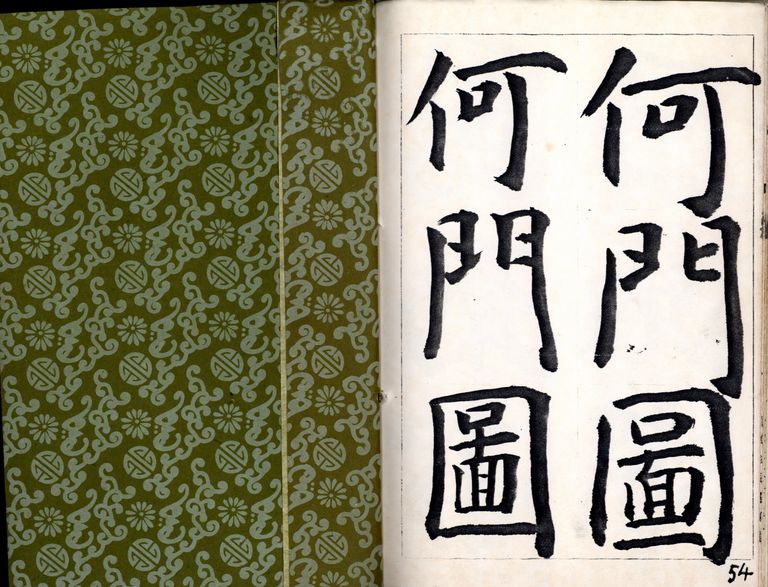 何門圖
何門圖
54